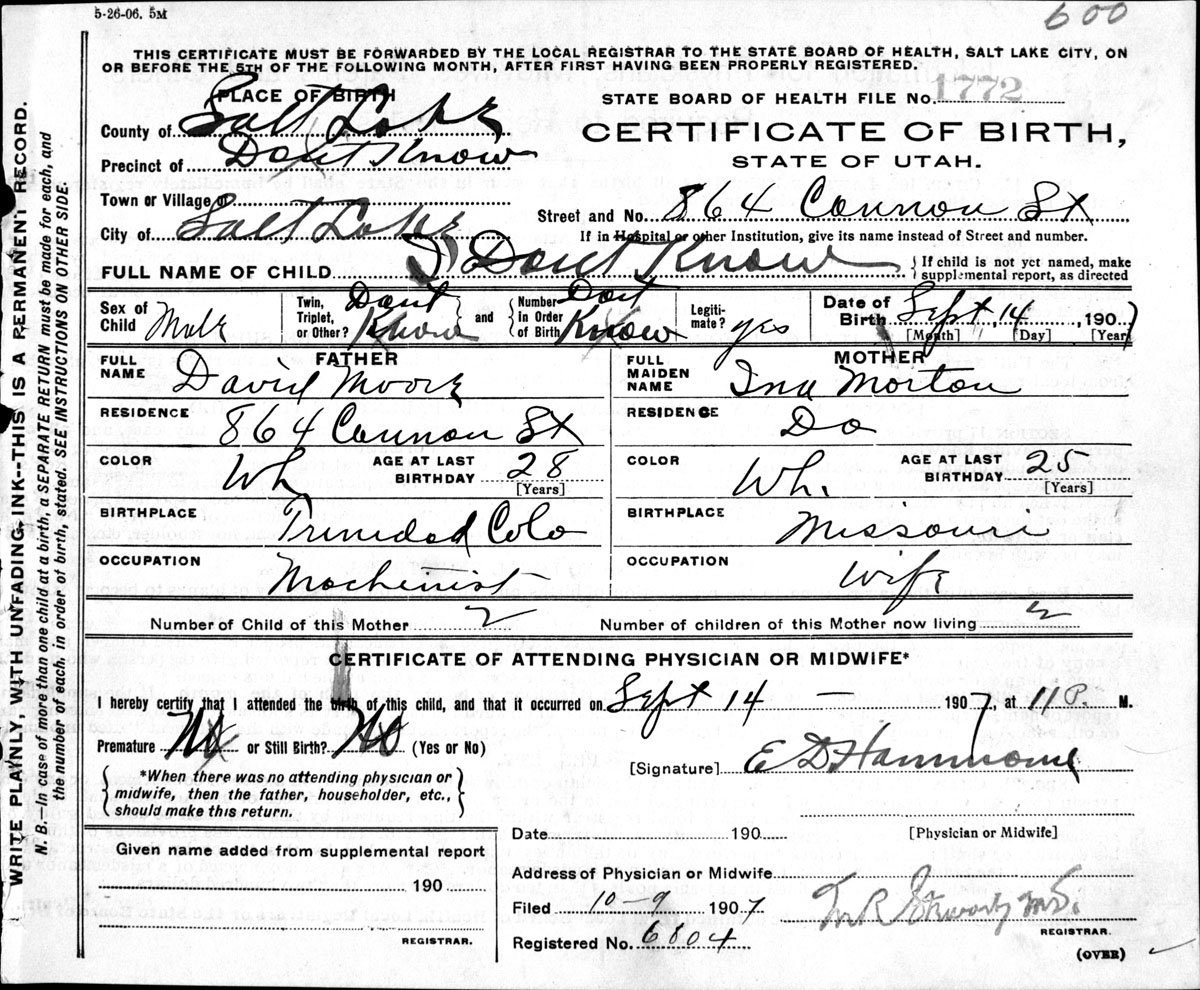 5-26-06. 5M
600
THIS CERTIFICATE MUST BE FORWARDED BY THE LOCAL REGISTRAR TO THE STATE BOARD OF HEALTH, SALT LAKE CITY, ON
OR BEFORE THE 5TH OF THE FOLLOWING MONTH, AFTER FIRST HAVING BEEN PROPERLY REGISTERED.
PLACE OF BIRTH
STATE BOARD OF HEALTH FILE No. 1772
County of Salt Lake
CERTIFICATE OF BIRTH,
Precinct of Dont Know
STATE OF UTAH.
Town or Village of
Street and No. 864 Cannon St
City of Salt Lake
If in Hospital or other Institution, give its name instead of Street and number.
FULL NAME OF CHILD Dont Know
{ If child is not yet named, make
supplemental report, as directed
Sex of Child Male
Twin, Triplet, or Other? Dont Know
and
Number In Order of Birth Dont Know
Legiti-mate? yes
Date of Birth Sept 14, 1907
[Month] [Day] [Year]
FATHER
FULL NAME David Moore
MOTHER
FULL MAIDEN NAME Ina Morton
RESIDENCE 864 Cannon St
RESIDENCE Do
COLOR Wh
AGE AT LAST BIRTHDAY 28
[Years]
COLOR Wh.
AGE AT LAST BIRTHDAY 25
[Years]
BIRTHPLACE Trinidad Colo
BIRTHPLACE Missouri
OCCUPATION Machinist
OCCUPATION Wife
Number of Child of this Mother 2
Number of children of this Mother now living 2
CERTIFICATE OF ATTENDING PHYSICIAN OR MIDWIFE*
I hereby certify that I attended the birth of this child, and that it occurred on Sept 14 — 1907, at 11 P. M.
Premature No or Still Birth? No (Yes or No)
[Signature] E D Hammond
*When there was no attending physician or
midwife, then the father, householder, etc.,
should make this return.
[Physician or Midwife]
Date 190
Given name added from supplemental report
190
REGISTRAR.
Address of Physician or Midwife
Filed 10-9 1907
REGISTRAR.
Registered No. 6804
(OVER)
WRITE PLAINLY, WITH UNFADING INK--THIS IS A PERMANENT RECORD.
N. B.—In case of more than one child at a birth, a SEPARATE RETURN must be made for each, and
the number of each, in order of birth, stated. SEE INSTRUCTIONS ON OTHER SIDE.